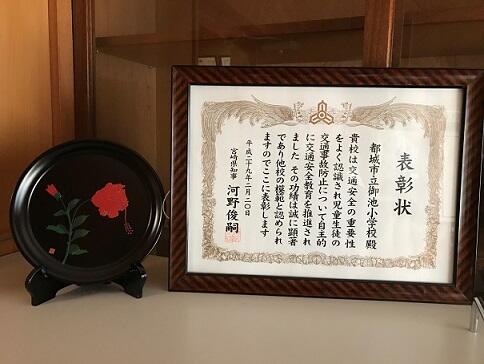 表彰状
都城市立御池小学校殿
貴校は交通安全の重要性
をよく認識され児童生徒の
交通事故防止について自主的
に交通安全教育を推進され
ました その功績は誠に顕著
であり他校の模範と認められ
ますのでここに表彰します
平成二十九年二月二〇日
宮崎県知事 河野俊嗣